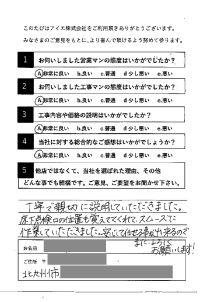 このたびはアイエ株式会社をご利用頂きありがとうございます。
みなさまのご意見をもとに、より喜んで頂けるよう努めて参ります。
1 お伺いしました営業マンの感度はいかがでしたか?
a.非常に良い b.良い c.普通 d.少し悪い e.悪い
2 お伺いしました工事マンの感度はいかがでしたか?
a.非常に良い b.良い c.普通 d.少し悪い e.悪い
3 工事内容や価格の説明はいかがでしたか?
a.非常に良い b.良い c.普通 d.少し悪い e.悪い
4 当社に対する総合的なご感想はいかがでしょうか?
a.非常に良い b.良い c.普通 d.少し悪い e.悪い
5 他店ではなくて、当社を選ばれた理由、その他
どんな事でも結構です。ご意見、ご要望をお聞かせ下さい。
丁寧で親切に説明していただきました。
床下点検口の位置も変えてくれて、スムーズに
作業していただきました。安心して任せる事が出来るので
お願いします!
お名前
ご住所 〒
北九州市